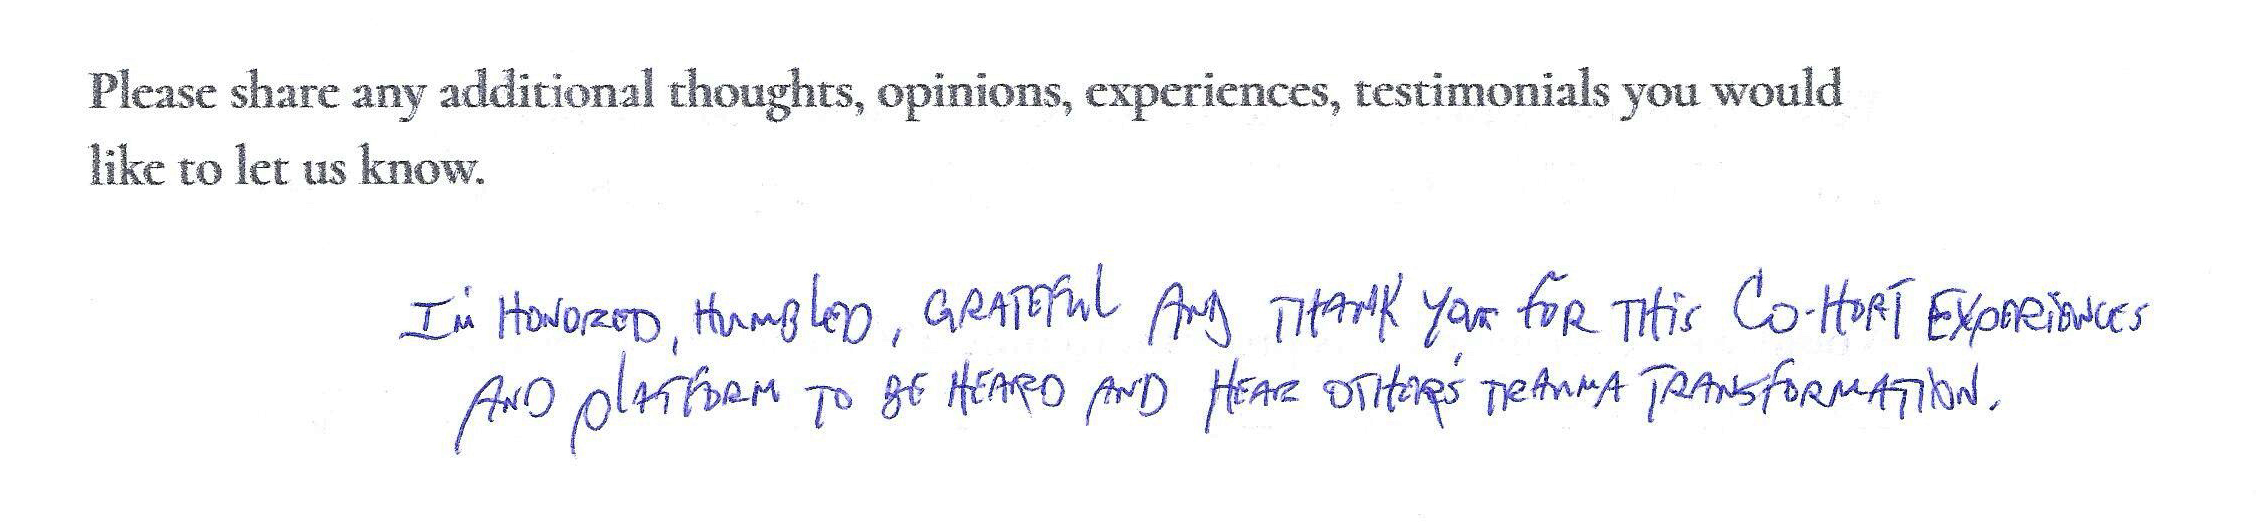 Please share any additional thoughts, opinions, experiences, testimonials you would
like to let us know.
I'm HONORED, HUMBLED, GRATEFUL AND THANK YOU FOR THIS CO-HORT EXPERIENCES
AND PLATFORM TO BE HEARD AND HEAR OTHER'S TRAUMA TRANSFORMATION.